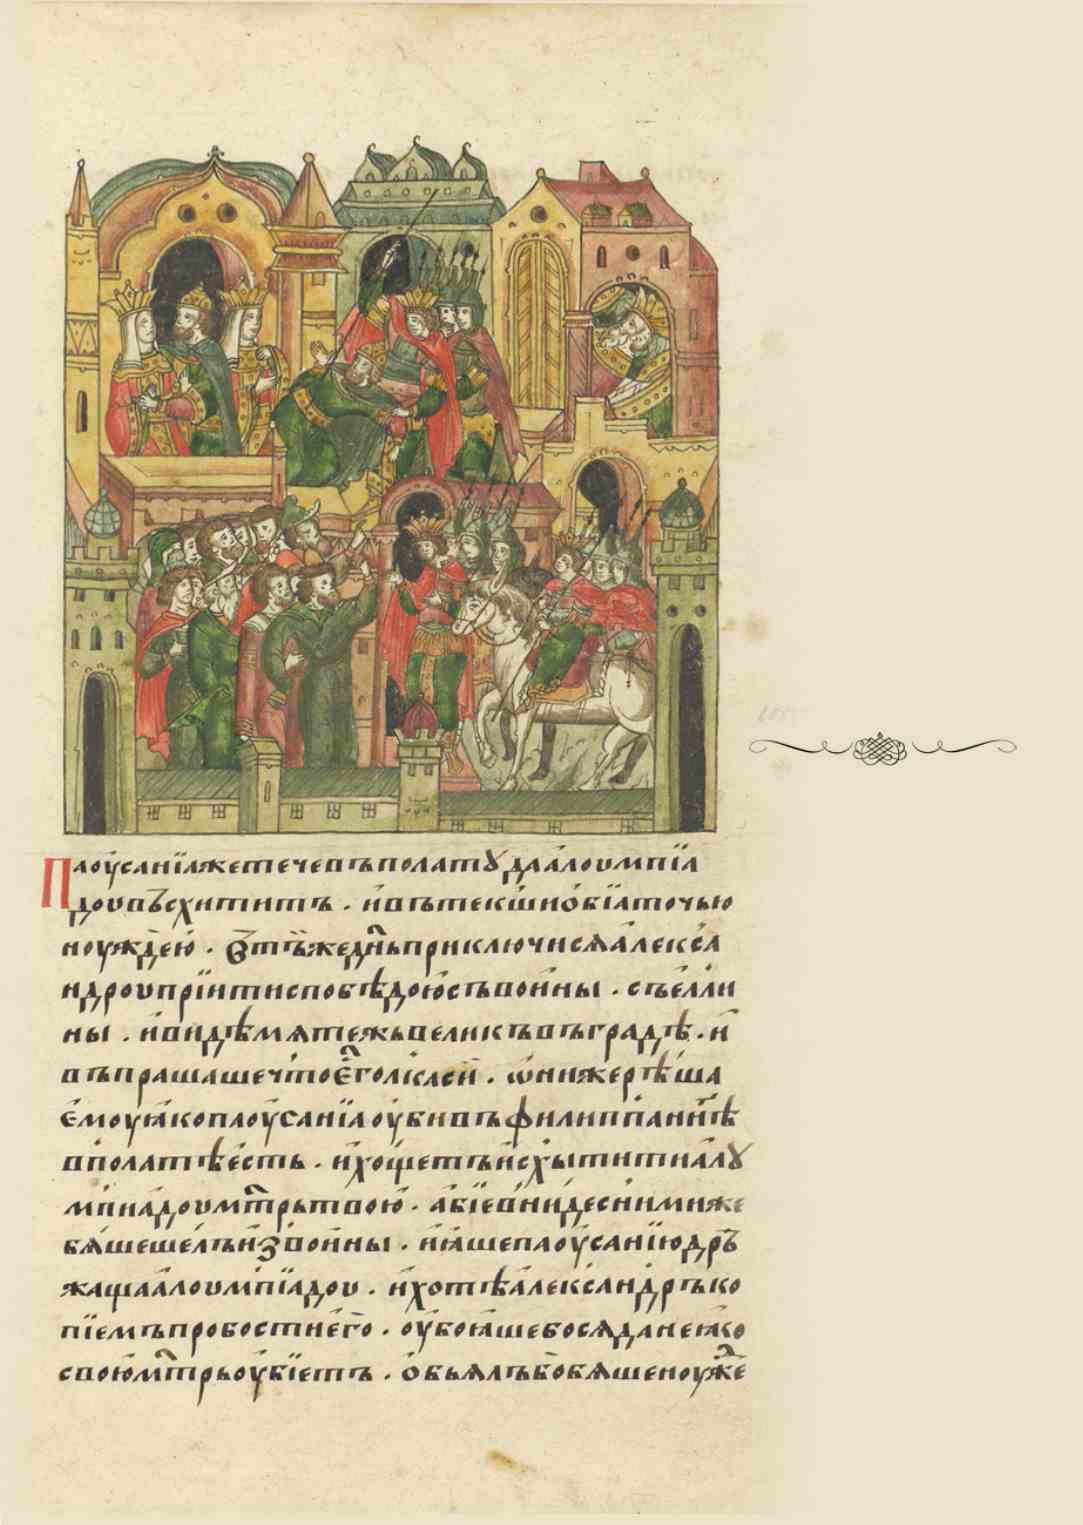 Паоу҆санїѧжетечевъполатꙋдаа҆лоумпїꙗ
доувъсхитить . и҆втъ текш҆иѻ҆бїꙗточью
ноуждею̀ . Ѿтъжеднь҆приключисѧа҆лекса
ндроупрїитиспобѣдою҆съвои҆ны . съе҆лли
ны . и҆видѣмѧтежьвеликъвъградѣ . и҆
въпрашашечтое҆голкасѧ . ѡ҆нижерѣша
е҆моуꙗ҆копаоу҆санїꙗоу҆бивъфилиппаи҆нн҃ѣ
вполатѣе҆сть . и҆хощетъи҆схытитиа҆лꙋ
мпиа҆доумт҃рьтвою̀ . а҆бїевнидеснимиже
бѧ́шешелъи҆звои҆ны . и҆ꙗ҆шепаоу҆санїюдръ
жащаа҆лоумпїадоу . и҆хотѣа҆лександръко
пїемъпробостине҆го . оу҆боꙗ҆шебосѧданеꙗ҆ко
свою҆мт҃рьоу҆бїеть . ѻ҆бьѧлъбобѧшеноуже